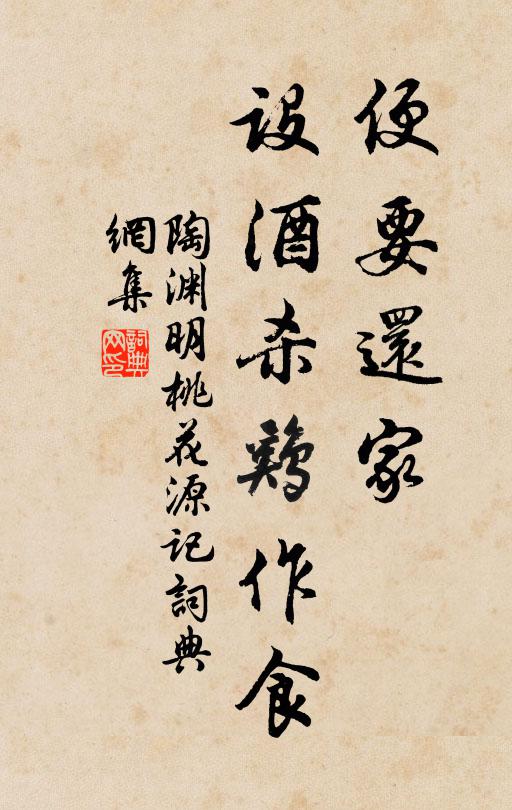 便要還家
設酒杀鷄作食
陶渊明桃花源记詞典
網集
詞典
网印